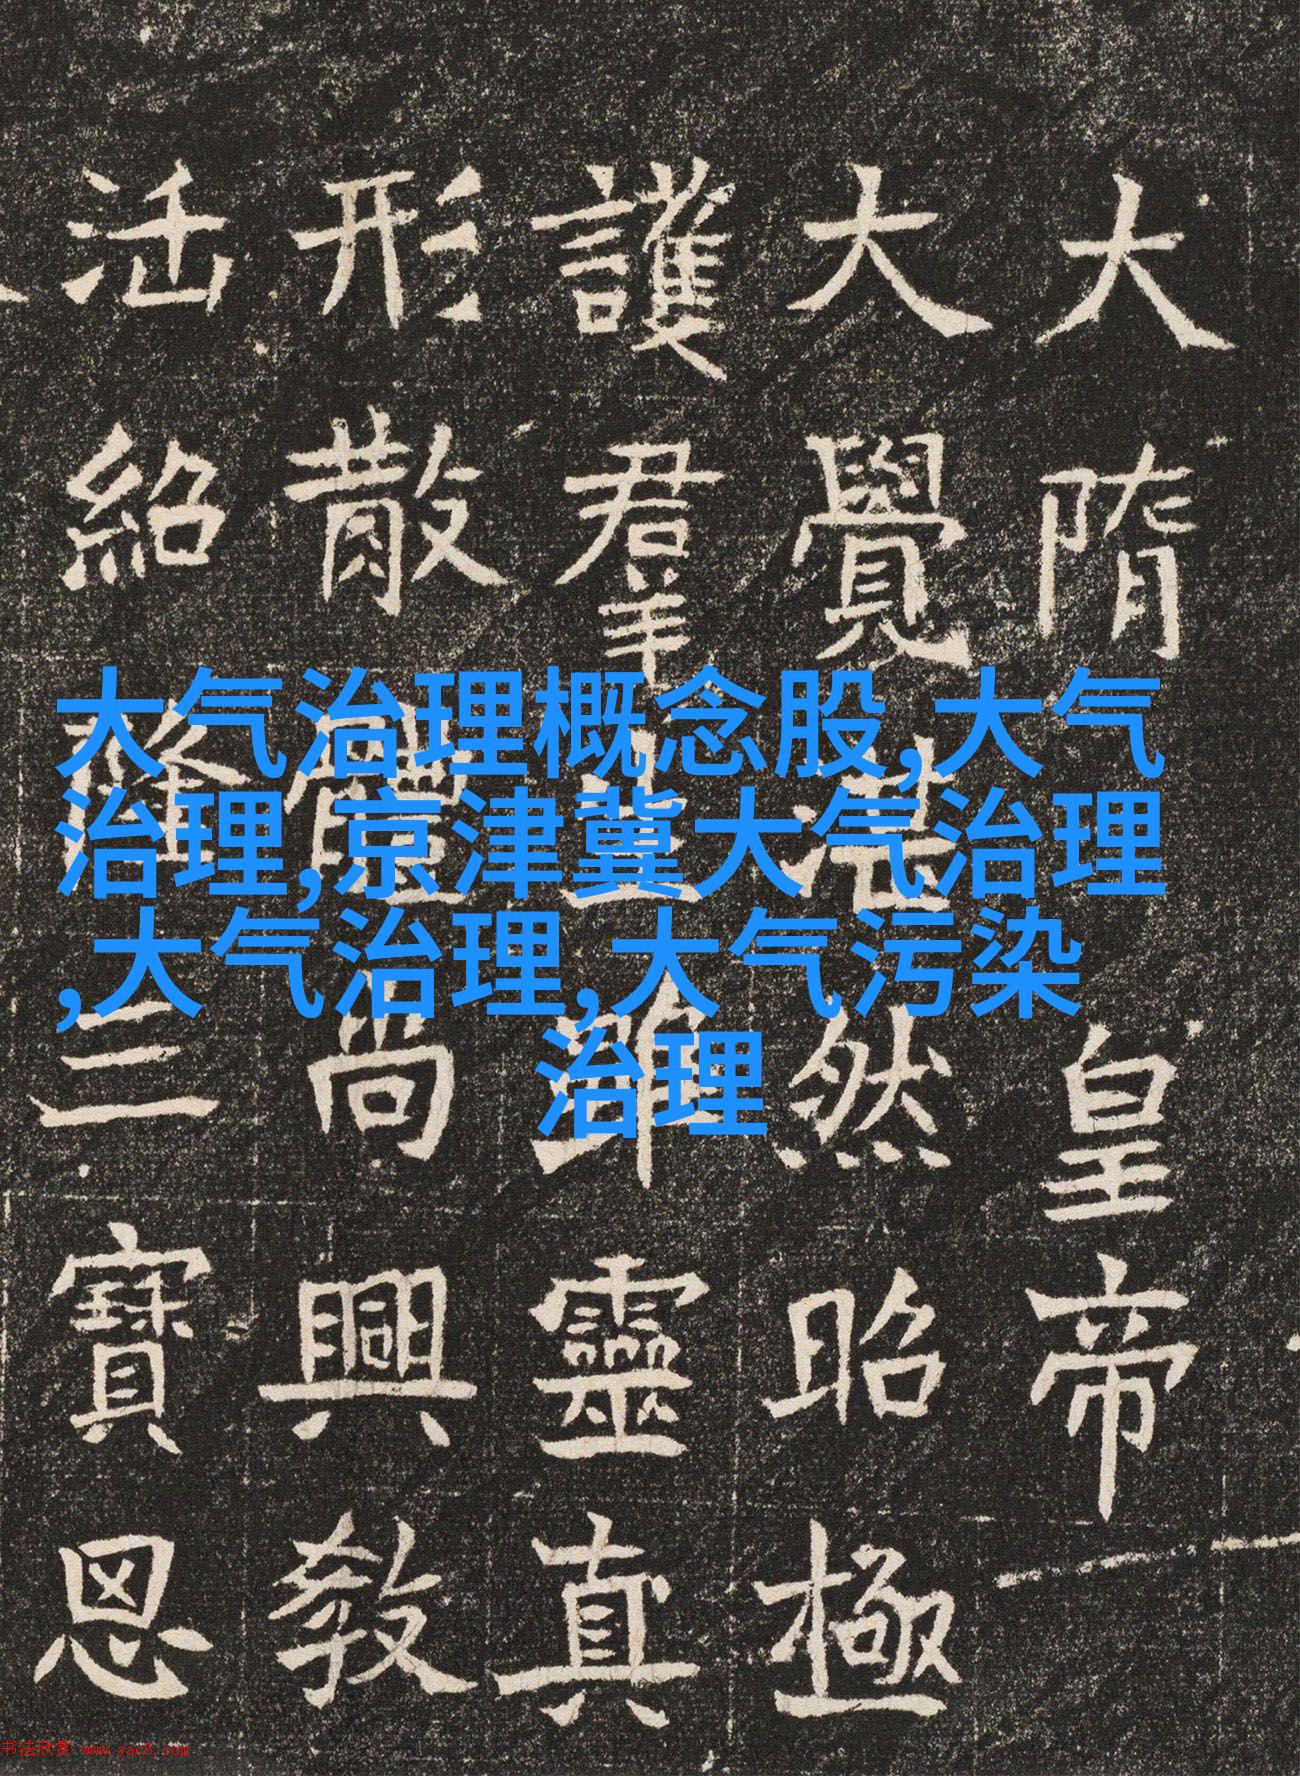 大气治理概念股,大气
治理,京津冀大气治理
,大气治理,大气污染
治理
大隋皇帝
大覺湛然昭極
護群靈真
形散體尚興教
活紹隆三寶恩
书法欣赏 www.yac8.com